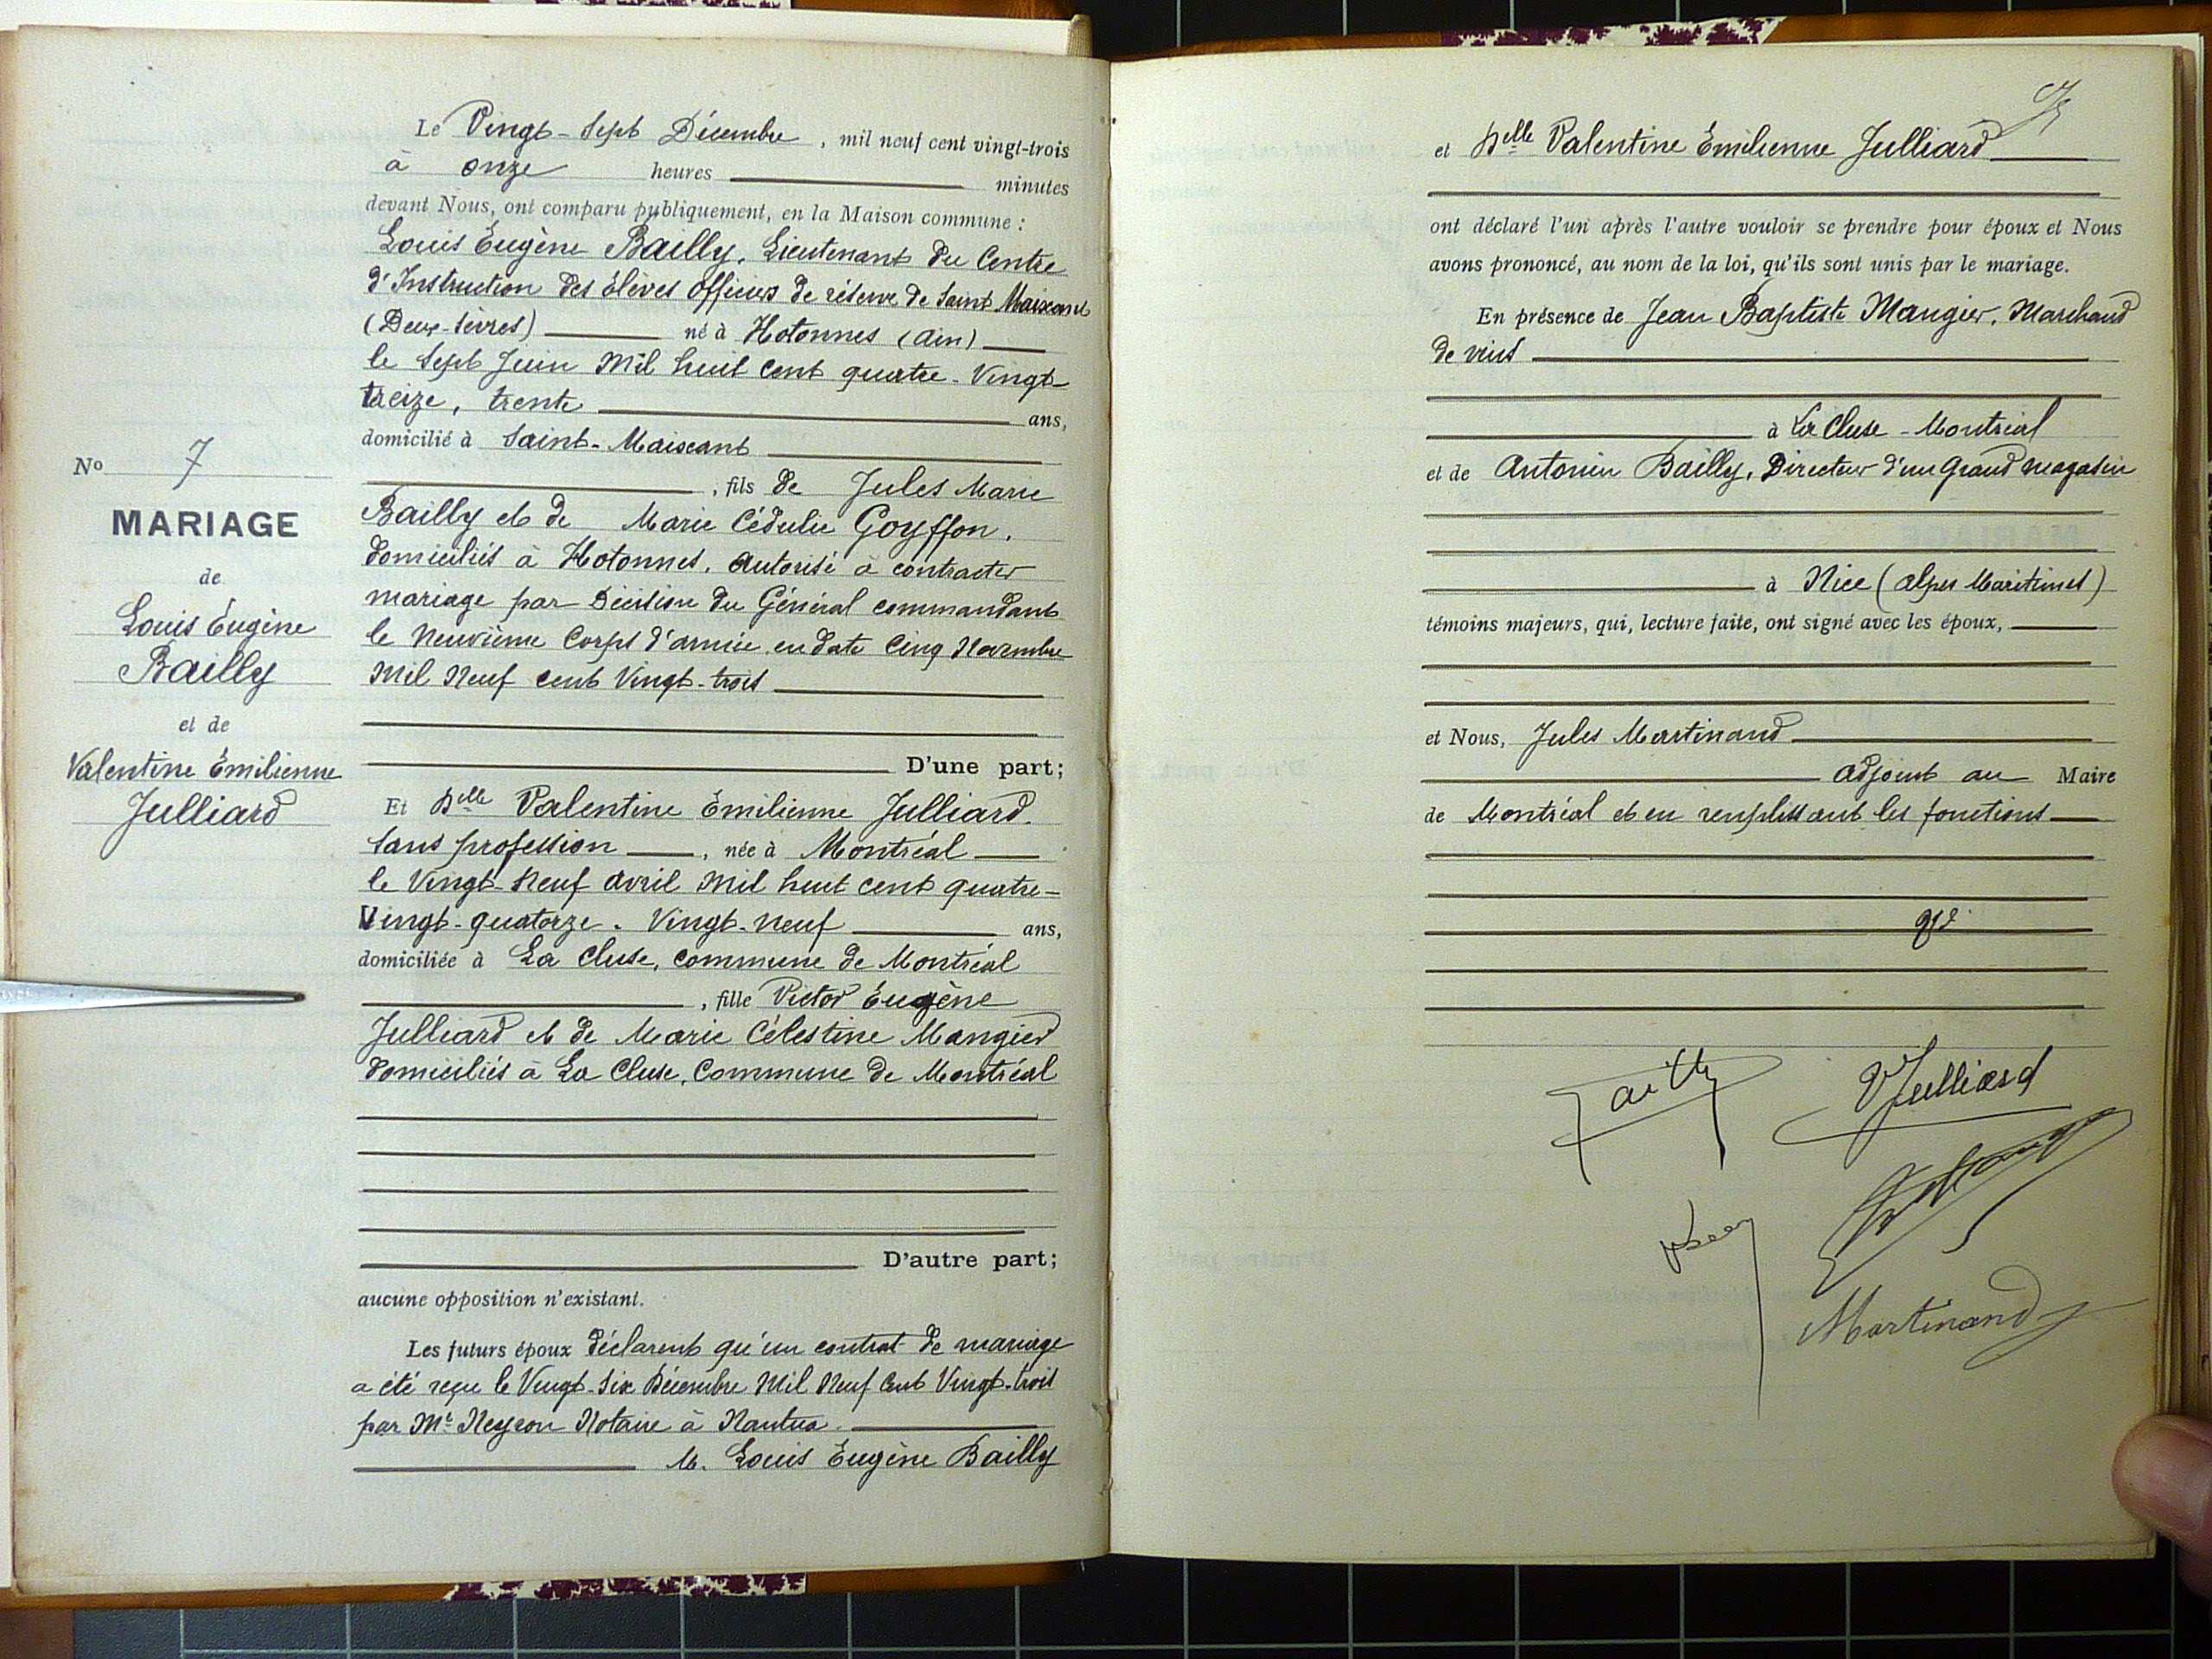 Le Vingt-Sept Décembre, mil neuf cent vingt-trois
à onze heures minutes
devant Nous, ont comparu publiquement, en la Maison commune :
Louis Eugène Bailly, Lieutenant du Centre
d'Instruction des élèves officiers de réserve de Saint Maixent
(Deux-Sèvres) né à Hotonnes (Ain)
le Sept Juin Mil huit cent quatre-Vingt-
treize, trente ans,
domicilié à Saint-Maixent
, fils de Jules Marie
Bailly et de Marie Cédulie Goyffon,
domiciliés à Hotonnes, autorisé à contracter
mariage par Décision du Général commandant
le Neuvième Corps d'armée en date Cinq Novembre
Mil Neuf cent Vingt-trois
D'une part;
No 7
MARIAGE
de
Louis Eugène
Bailly
et de
Valentine Émilienne
Julliard
Et Delle Valentine Émilienne Julliard
sans profession, née à Montréal
le Vingt-Neuf Avril Mil huit cent quatre-
Vingt-quatorze. Vingt-neuf ans,
domiciliée à La Cluse, commune de Montréal
, fille Victor Eugène
Julliard et de Marie Célestine Mangier
domiciliés à La Cluse, Commune de Montréal
D'autre part;
aucune opposition n'existant.
Les futurs époux déclarent qu'un contrat de mariage
a été reçu le Vingt-Six Décembre Mil Neuf Cent Vingt-trois
par Me Neyron Notaire à Nantua.
M. Louis Eugène Bailly
et Delle Valentine Émilienne Julliard
ont déclaré l'un après l'autre vouloir se prendre pour époux et Nous
avons prononcé, au nom de la loi, qu'ils sont unis par le mariage.
En présence de Jean Baptiste Mangier, Marchand
de vins
à La Cluse-Montréal
et de Antonin Bailly, Directeur d'un Grand Magasin
à Nice (Alpes Maritimes)
témoins majeurs, qui, lecture faite, ont signé avec les époux,
et Nous, Jules Martinand
adjoint au Maire
de Montréal et en remplissant les fonctions
Bailly
VJulliard
Martinand